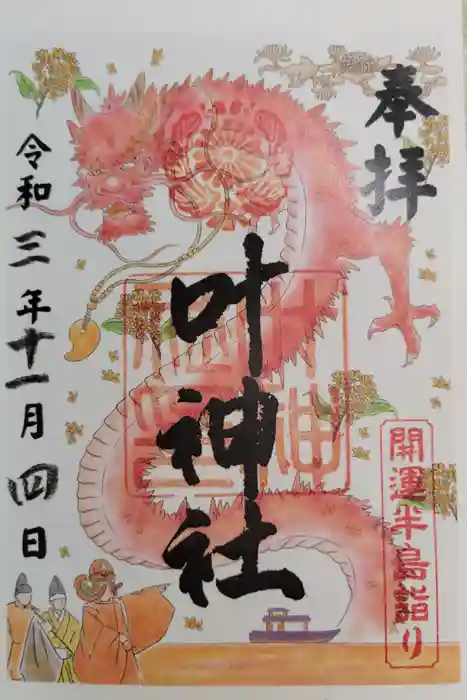 奉拝
叶神社
開運半島詣り
令和三年十一月四日